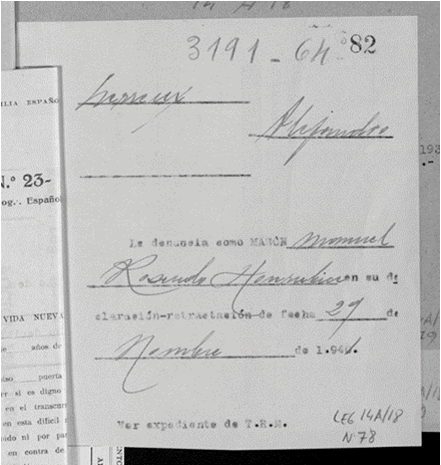 14 A/18
3191-64 82
Lerroux
Alejandro
LIA ESPAÑO
N.º 23-
og.. Español
193
Le denuncia como MASÓN Manuel
Rosendo
en su de
claración-retractación de fecha 29 de
VIDA NUEVA
de 1.94
años de
puerta
rr si es digno
en el transcurs
en esta difícil
ido ni por pa
en contra de
Ver expediente de T.R.M.
LEG 14A/18
Nº 78